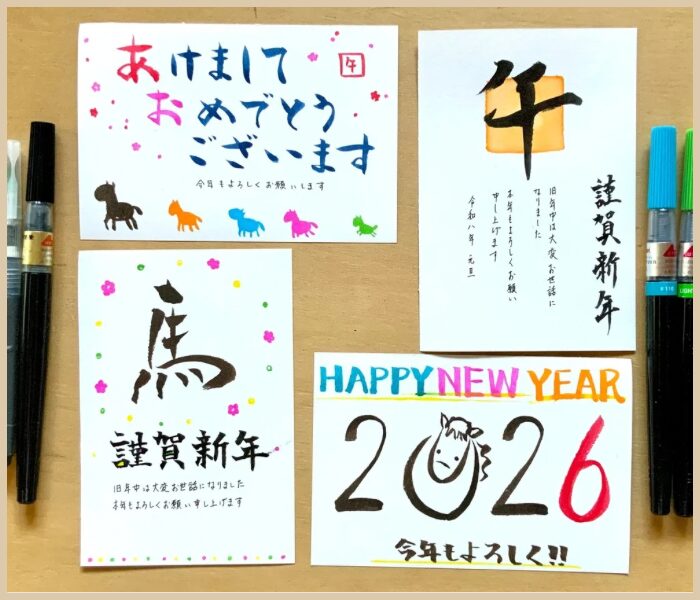 あけまして
午
おめでとう
ございます
今年もよろしくお願いします
午
謹賀新年
旧年中は大変お世話に
なりました
本年もよろしくお願い
申し上げます
令和八年 元旦
馬
謹賀新年
旧年中は大変お世話になりました
本年もよろしくお願い申し上げます
HAPPY NEW YEAR
2026
今年もよろしく!!